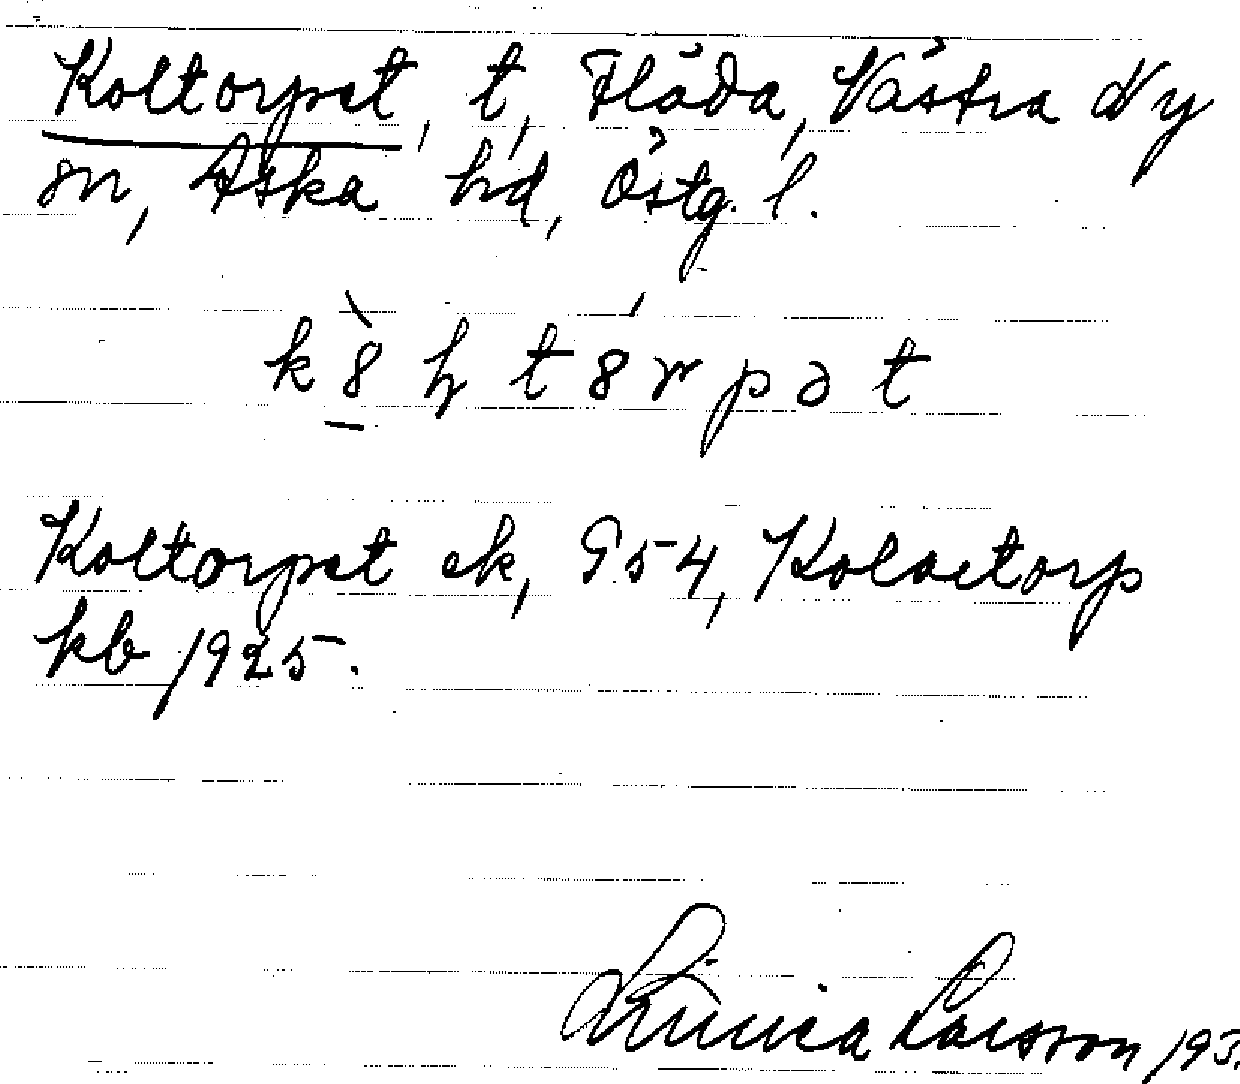 Koltorpet, t, Flåda, Västra Ny
sn, Aska hd, Östg. l.
Koltorpet ek, 954, Kolaetorp
kb 1925.
Linnea Larsson 193